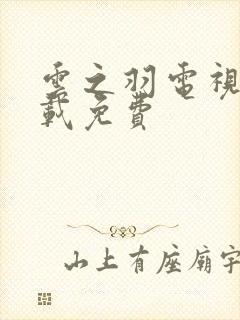 雲之羽電視
載免費
山上有座廟宇